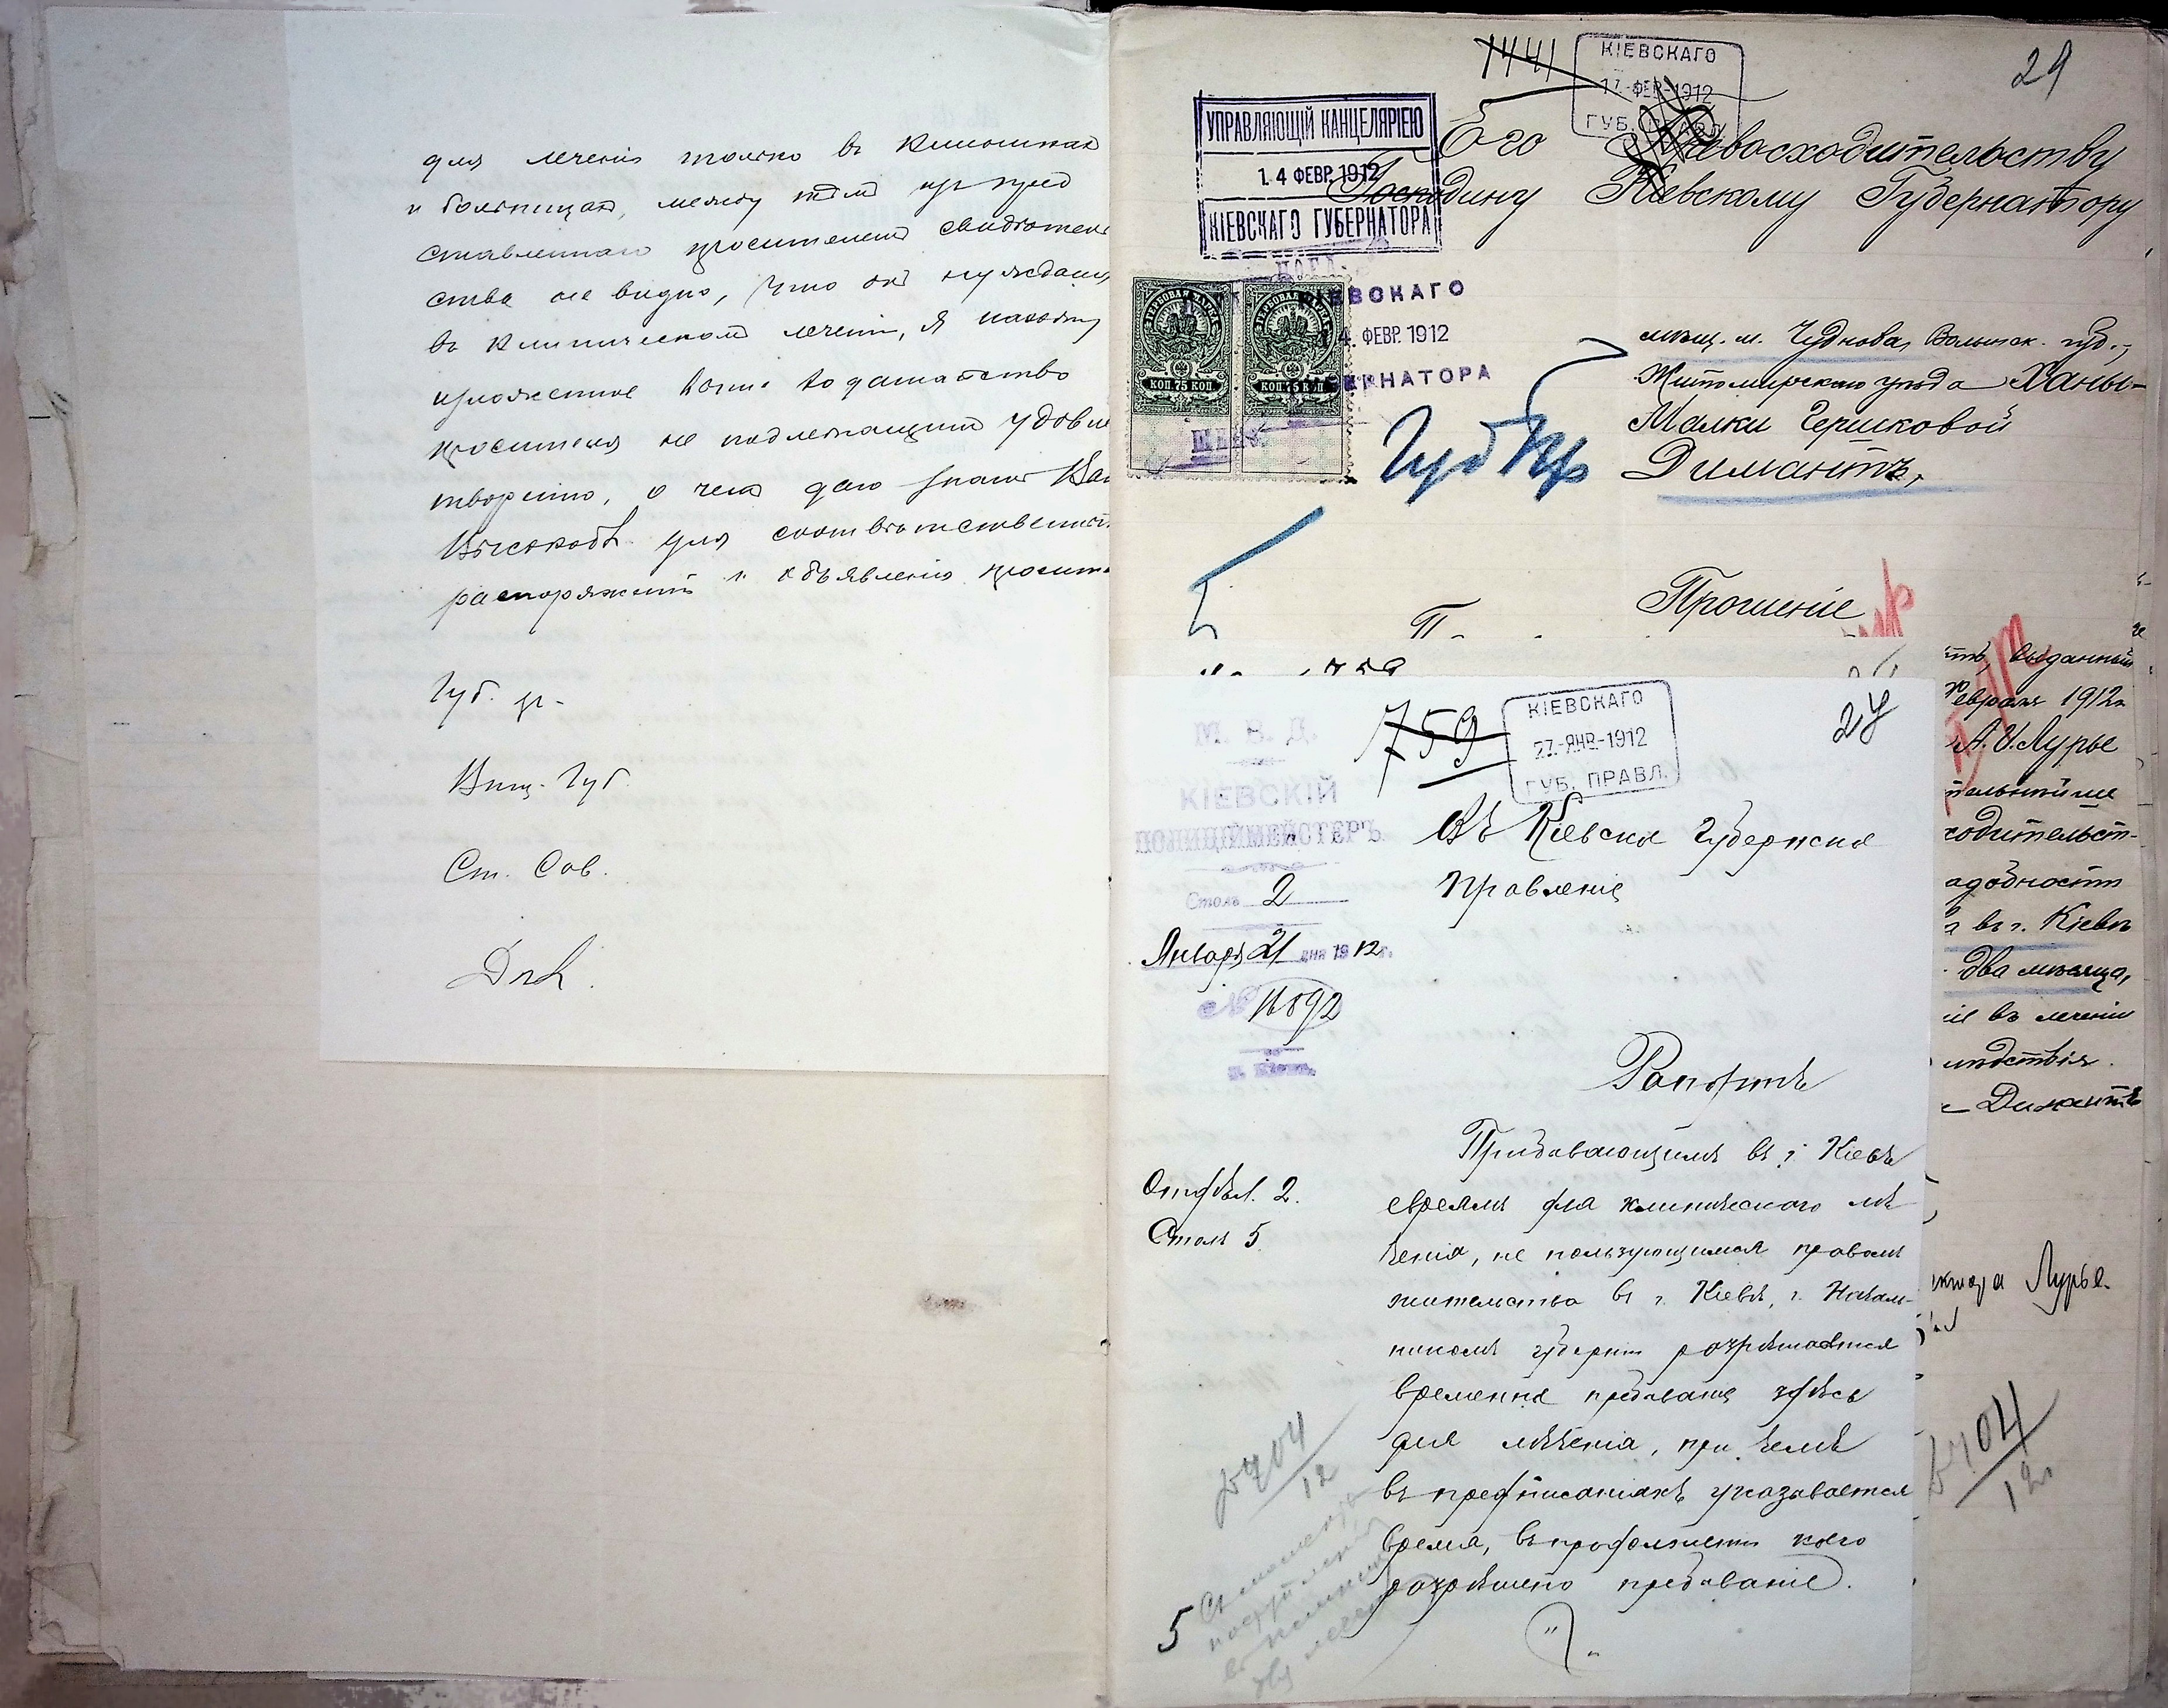 для леченія только въ клиникахъ
и больницахъ, между тѣмъ изъ пред
ставленнаго просителемъ свидѣтель
ства не видно, что онъ нуждается
въ клиническомъ леченіи, я нахожу
изложенное выше ходатайство
просителя не подлежащимъ удовле
творенію, о чемъ даю знать Ва
Высокобл. для соотвѣтственнаго
распоряженія и объявленія просит
Губ. пр.
Виц. Губ.
Ст. Сов.
1441
КІЕВСКАГО
17.-ФЕВ.-1912
ГУБ. ПРАВЛ.
29
УПРАВЛЯЮЩІЙ КАНЦЕЛЯРІЕЮ
14 ФЕВР. 1912
КІЕВСКАГО ГУБЕРНАТОРА
Его Превосходительству
Господину Кіевскому Губернатору
КІЕВСКАГО
14. ФЕВР. 1912
ГУБЕРНАТОРА
ГЕРБОВАЯ МАРКА
КОП. 75 КОП.
ГЕРБОВАЯ МАРКА
КОП. 75 КОП.
мѣщ. м. Чуднова, Волынск. губ.,
Житомирскаго уѣзда Ханы-
Малки Гершковой
Димантъ,
Губ Пр
Прошеніе
выданный
евраля 1912
А. И. Лурье
тельнѣйше
ходительст-
адобности
въ г. Кіевѣ
два мѣсяца,
въ леченіи
слѣдствія.
Димантъ
ктора Лурье.
04
12
759
КІЕВСКАГО
27.-ЯНВ.-1912
ГУБ. ПРАВЛ.
24
М. В. Д.
КІЕВСКІЙ
ПОЛИЦІЙМЕЙСТЕРЪ
Столъ 2
Января 21 дня 1912 г.
№ 11892
г. Кіевъ.
Въ Кіевское Губернское
Правленіе
Рапортъ
Отдѣл. 2.
Столъ 5
Пребывающимъ въ г. Кіевѣ
евреямъ для клиническаго лѣ
ченія, не пользующимся правомъ
жительства въ г. Кіевѣ, г. Началь-
никомъ губерніи разрѣшается
временное пребываніе здѣсь
для лѣченія, при чемъ
въ предписаніяхъ указывается
время, въ продолженіи коего
разрѣшено пребываніе.
404
12
5